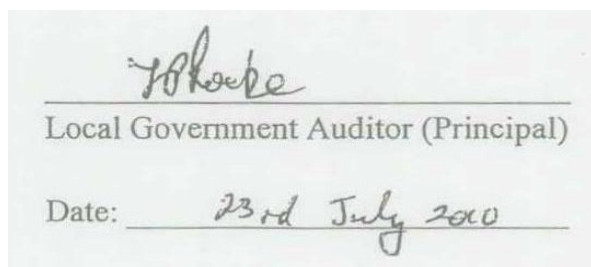 Local Government Auditor (Principal)
Date: 23rd July 2010